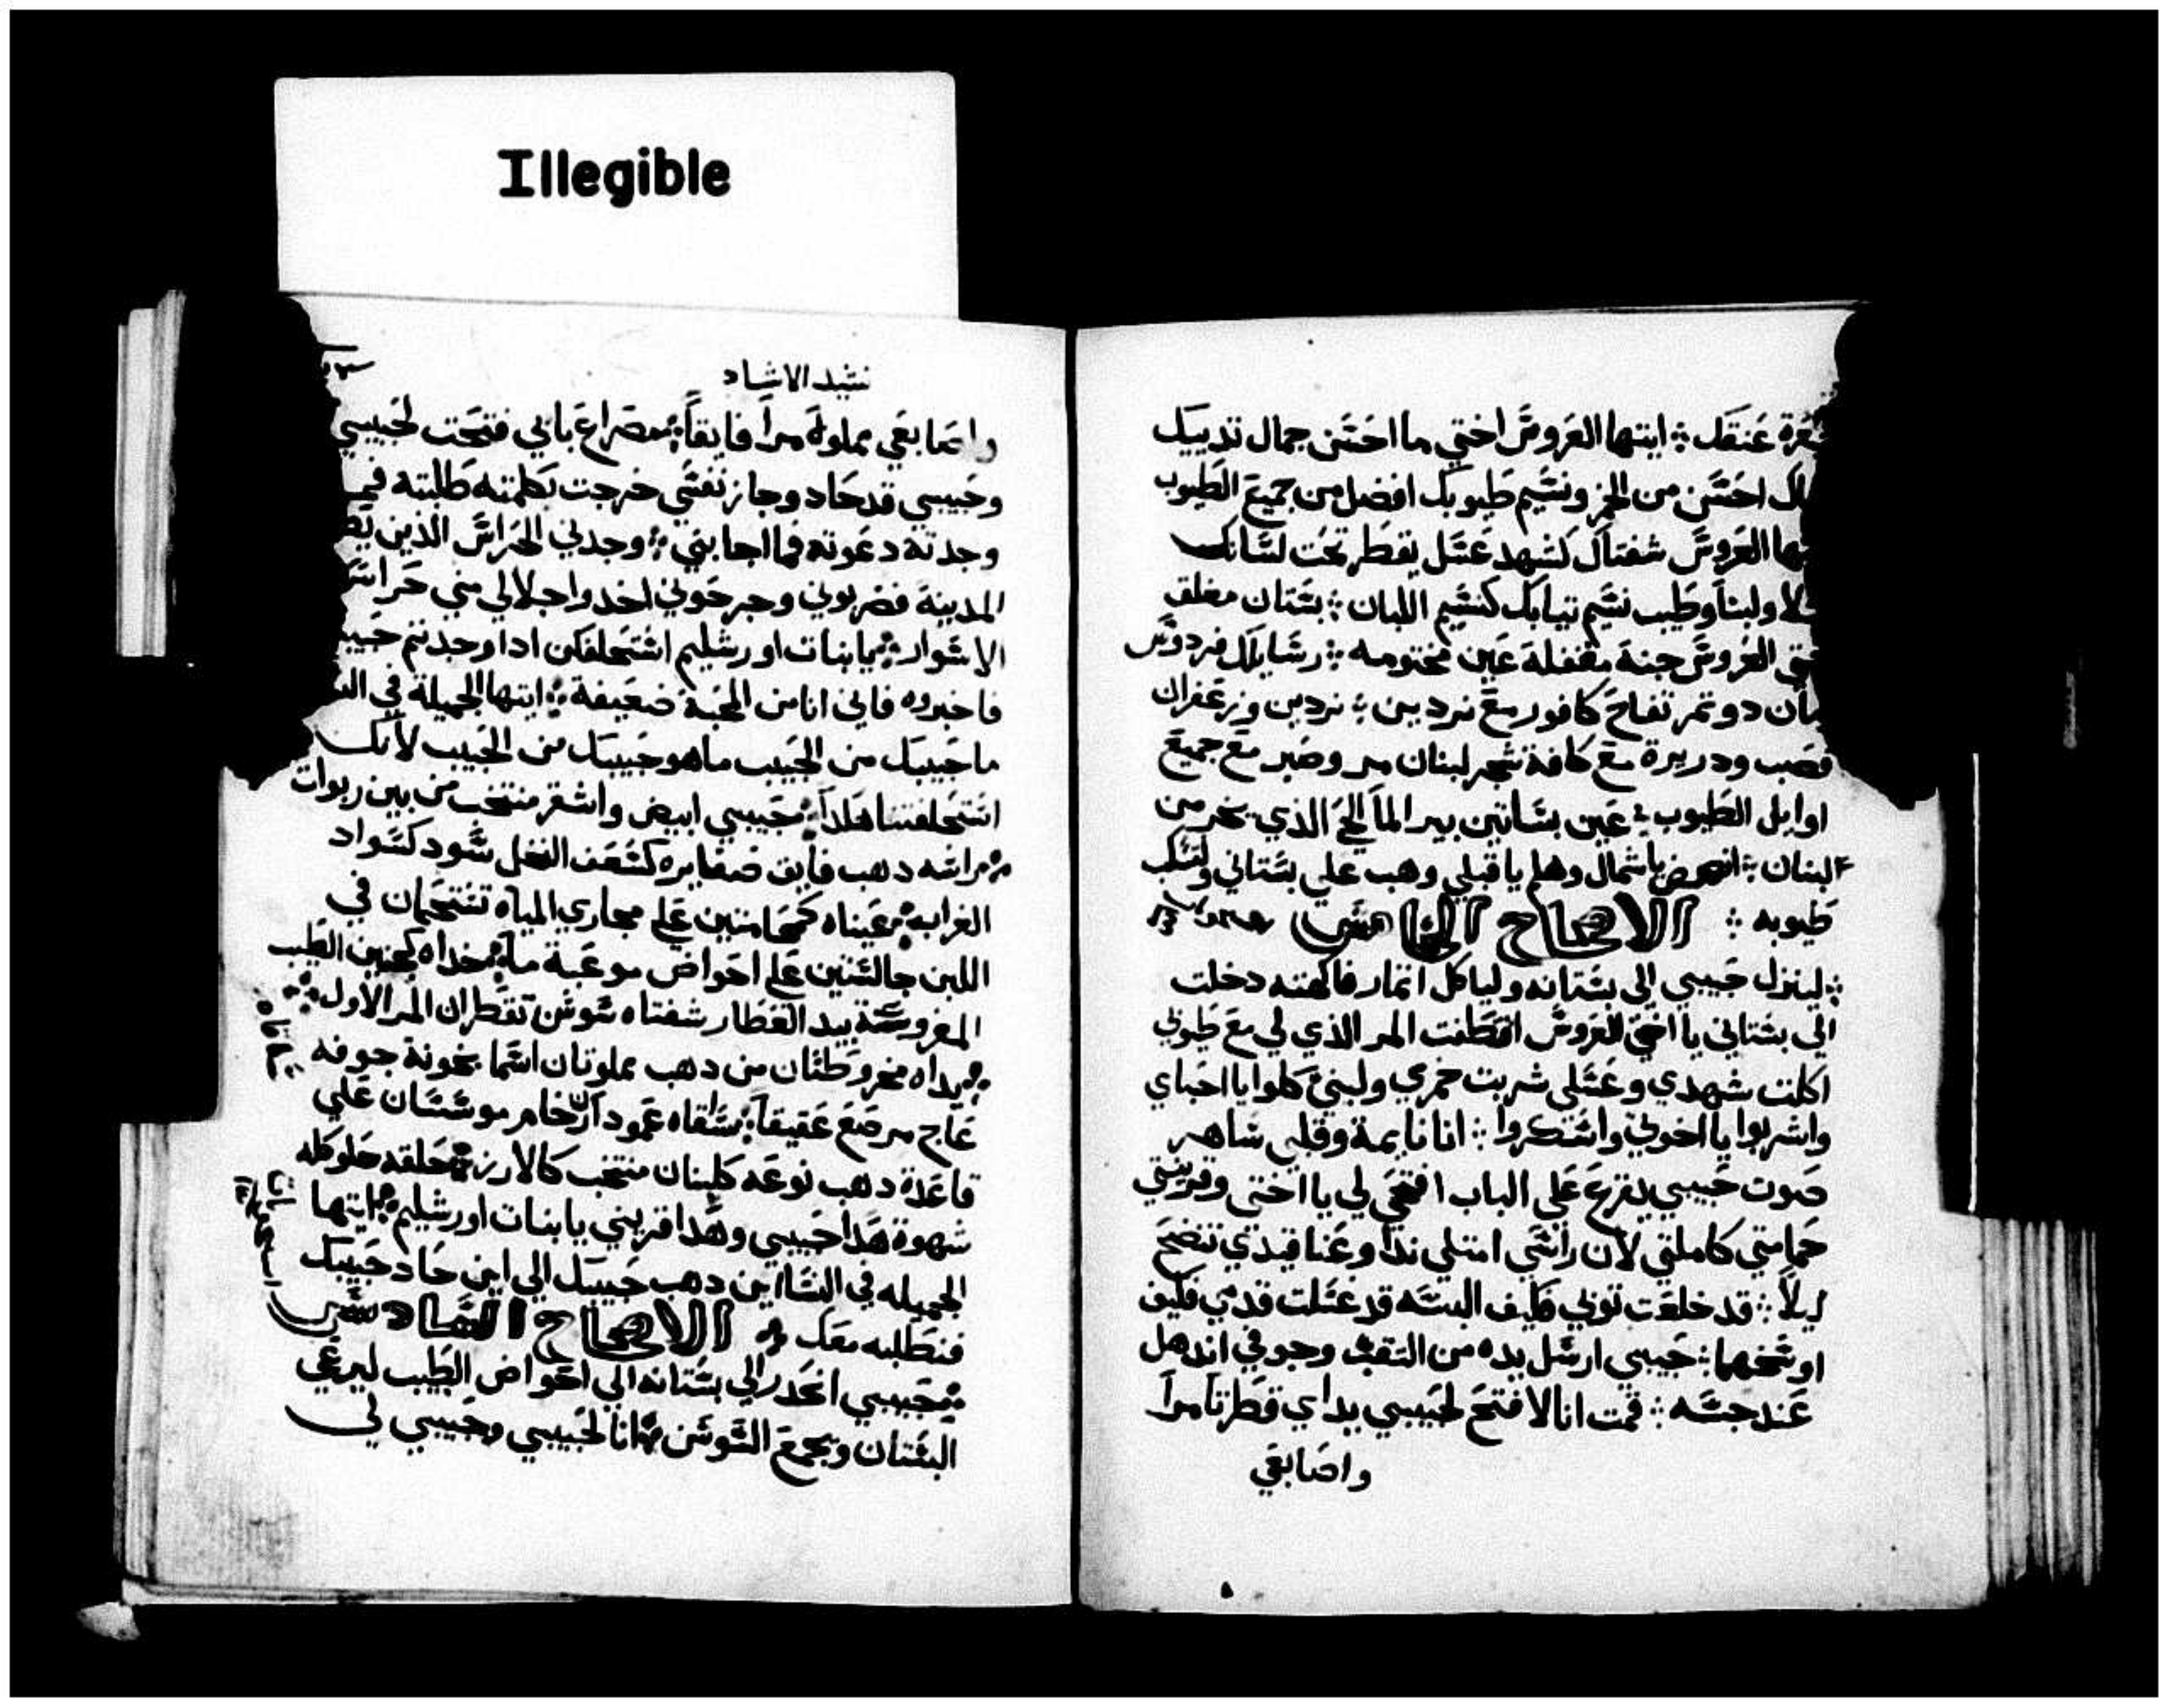 Illegible
عنقك ؞ ايتها العروس اختي ما احسن جمال ثدييك
احسن من الخمر ونسيم طيوبك افضل من جميع الطيوب
العروس شفتاك كشهد عسل يقطر تحت لسانك
ولبناً وطيب نسيم تيابك كنسيم اللبان ؞ بستان مغلق
العروس جنة مقفلة عين مختومه ؞ رسايلك فردوس
دو تمر تفاح كافور مع نردين ؞ نردين وزعفران
قصب ودريرة مع كافة شجر لبنان مر وصبر مع جميع
اوايل الطيوب ؞ عين بساتين بير الماَ الحي الذي يخر من
لبنان ؞ انهض يا شمال وهلم يا قبلي وهب علي بستاني
طيوبه ؞ الاصحاح الخامس
؞ لينزل حبيبي الي بستانه ولياكل اتمار فاكهته دخلت
الي بستاني يا اختي العروس اقتطفت المر الذي لي مع طيوبي
اكلت شهدي وعسلي شربت خمري ولبني كلوا يا احباي
واشربوا يا اخوتي واسكروا ؞ انا نايمة وقلبي ساهر
صوت حبيبي يقرع علي الباب افتحي لي يا اختي وقرينتي
حمامتي كاملتي لان راسي امتلي نداً وعناقيدي تنضح
ليلاً ؞ قد خلعت توبي فكيف البسه قد غسلت قدمي فكيف
اوسخهما ؞ حبيبي ارسل يده من التقب وجوفي اندهل
عند جسه ؞ قمت انا لافتح لحبيبي يداي قطرتا مراً
واصابعي
نشيد الانشاد
واصابعي مملوة مراً فايقاً ؞ مصراع بابي فتحت لحبيبي
وحبيبي قد حاد وجاز نفسي خرجت بكلمته طلبته فما
وجدته دعوته فما اجابني ؞ وجدني الحراس الذين
المدينة فضربوني وجرحوني اخدوا جلالي مني حراس
الاسوار ؞ يا بنات اورشليم استحلفكن ادا وجدتم
فاخبروه فاني انا من المحبة ضعيفة ؞ ايتها الجميلة في
ما حبيبك من الحبيب ما هو حبيبك من الحبيب لانك
استحلفتنا هكداً ؞ حبيبي ابيض واشقر منتخب من بين ربوات
؞ راسه دهب فايق ضفايره كسعف النخل سود كسواد
الغراب ؞ عيناه كحمامتين علي مجاري المياه تستحمان في
اللبن جالستين علي احواض موعبة ماَ ؞ خداه كجنين الطيب
المغروسة بيد العطار شفتاه سوسن تقطران المر الاول
؞ يداه مخروطتان من دهب مملوتان اسما نجونة جوفه
عاج مرصع عقيقاً ؞ ساقاه عمودا رخام موسسان علي
قاعدة دهب نوعه كلبنان منتخب كالارز ؞ حلقه حلو كله
شهوة هدا حبيبي وهدا قريني يا بنات اورشليم ؞ ايتها
الجميله في النسا اين دهب حبيبك الي اين حاد حبيبك
فنطلبه معك ؞ الاصحاح السادس
؞ حبيبي انحدر الي بستانه الي احواض الطيب ليرعي
البستان ويجمع السوسن ؞ انا لحبيبي وحبيبي لي